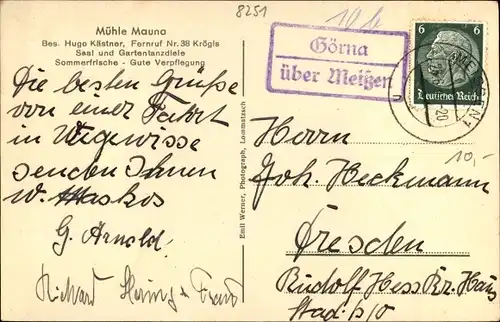 8251
10,-
Mühle Mauna
Bes. Hugo Kästner, Fernruf Nr. 38 Krögis
Saal und Gartentanzdiele
Sommerfrische - Gute Verpflegung
Görna
über Meißen
6 6
Deutsches Reich
20
Die besten Grüße
von einer Fahrt
in
senden Ihnen
W.
G. Arnold.
Richard
Emil Werner, Photograph, Lommatzsch
Herrn
Joh. Heckmann
Dresden
Rudolf Hess Br. Haus
10,-